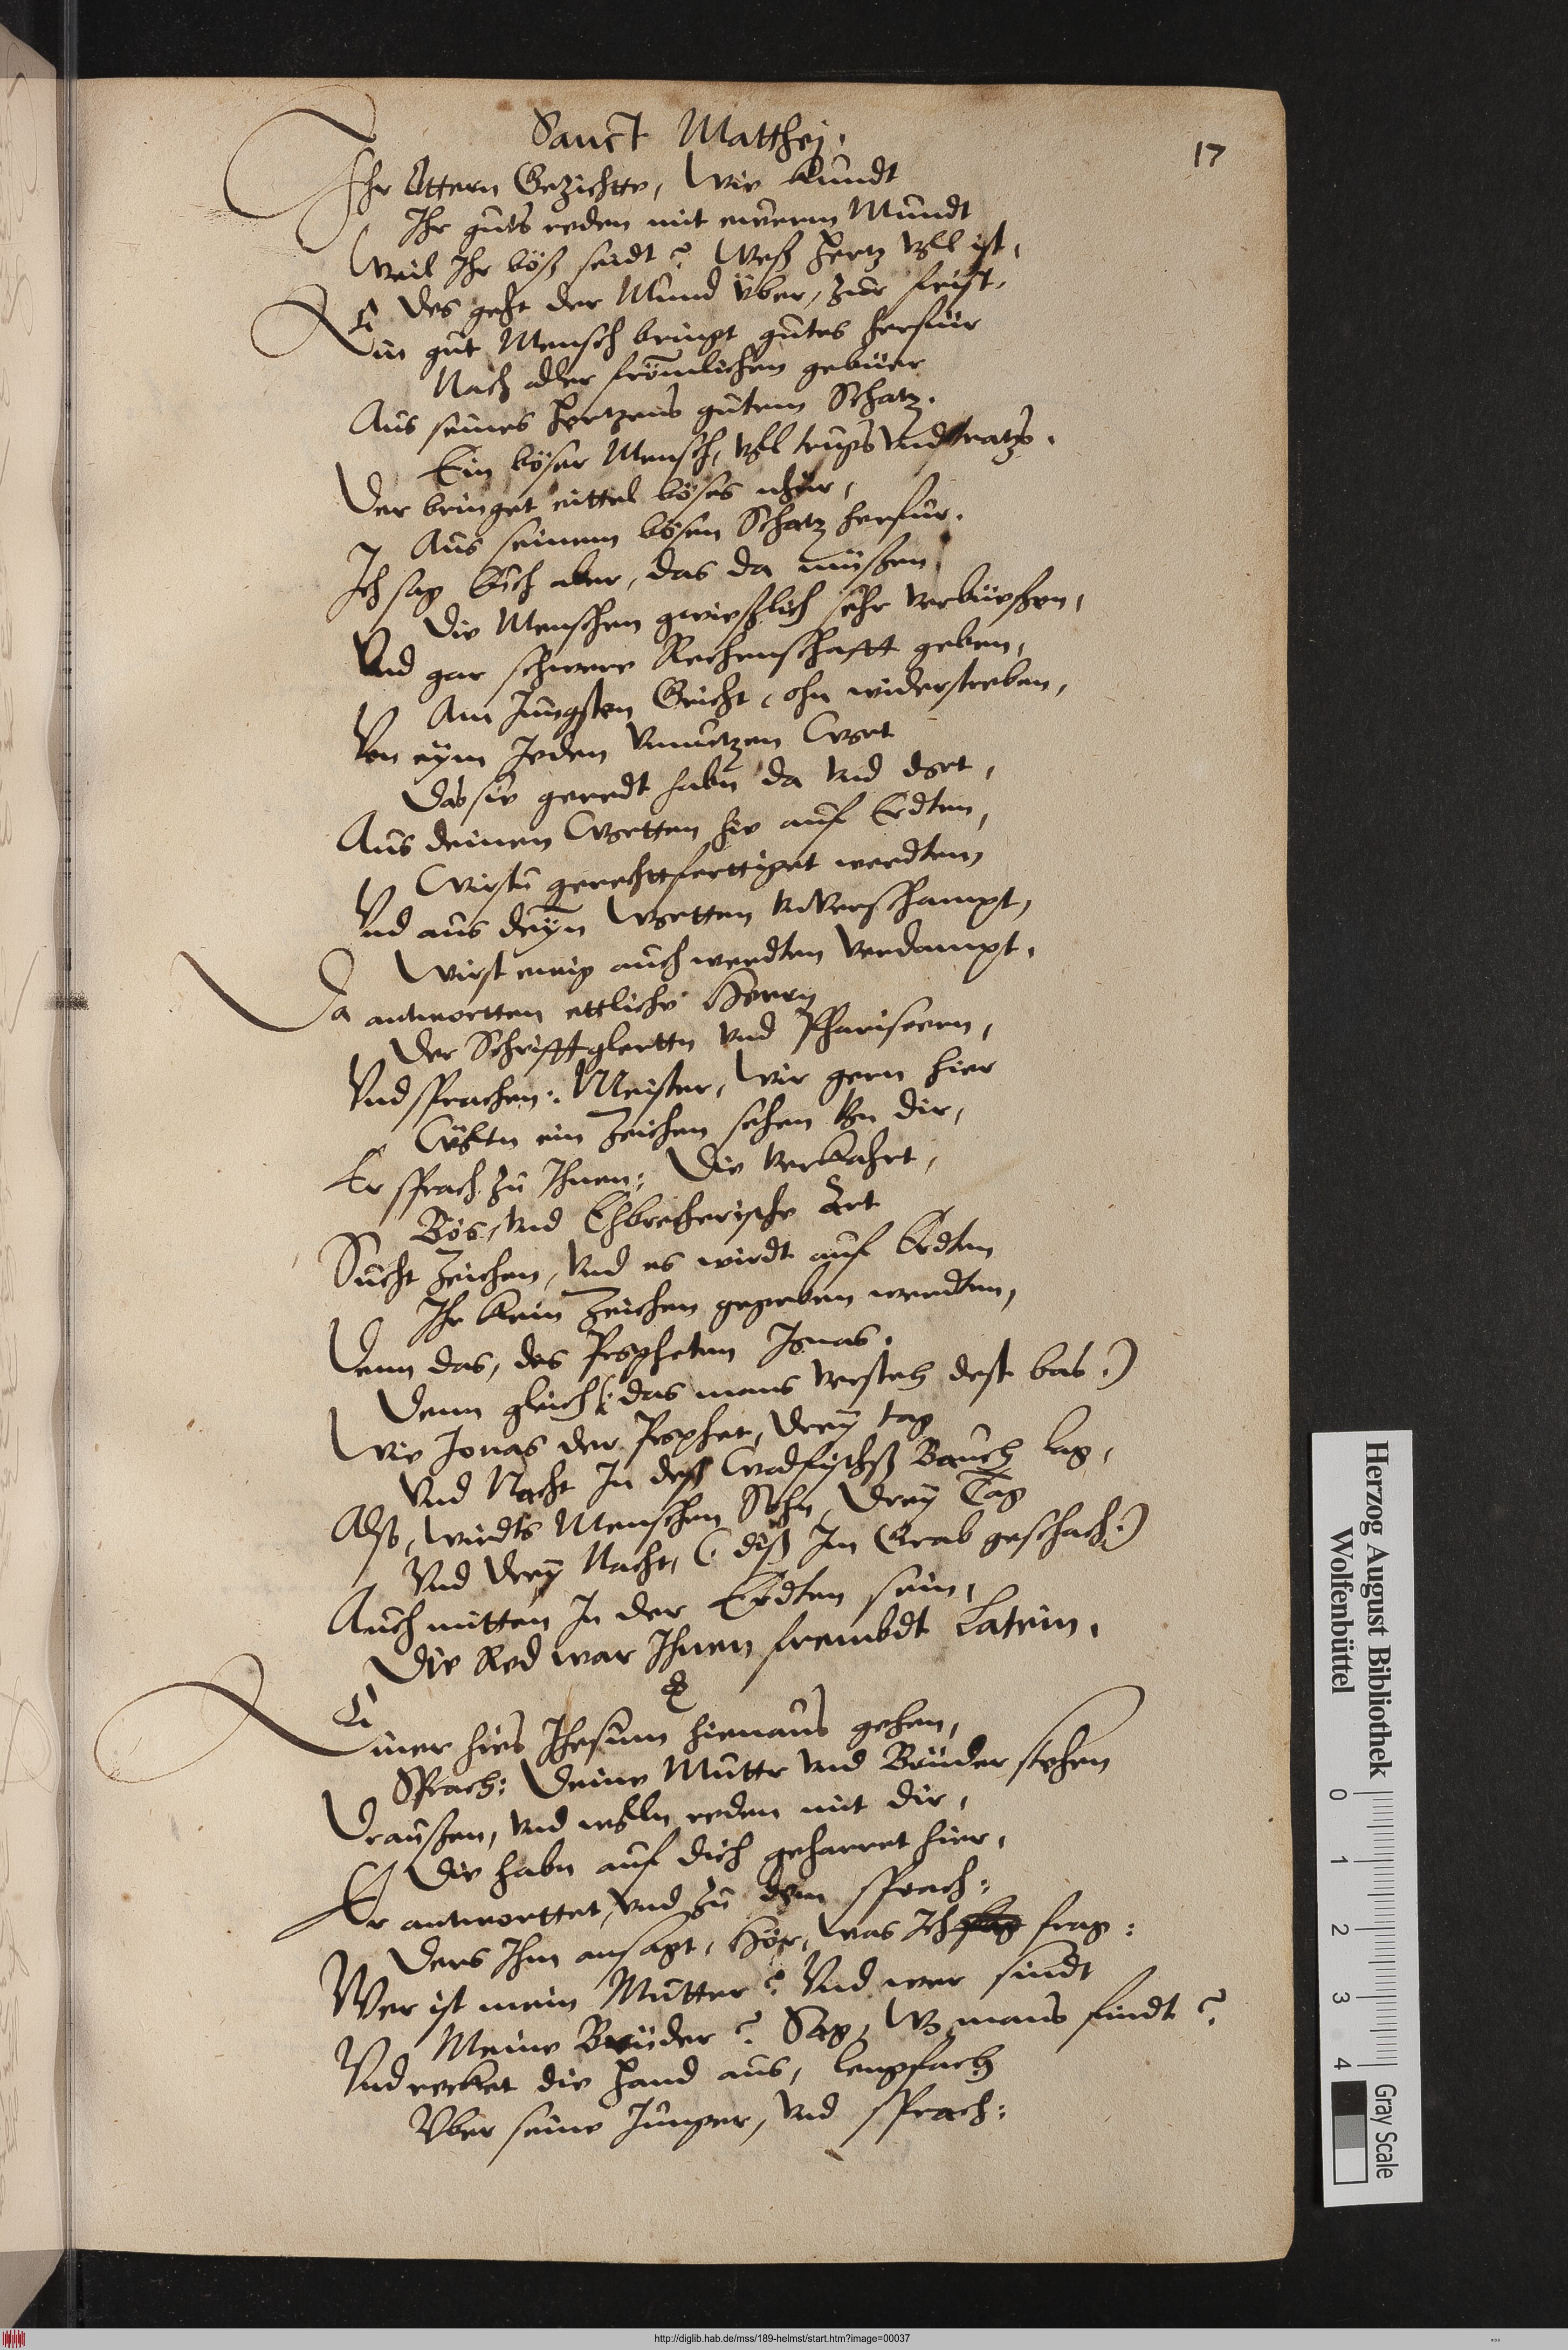 Sanct Matthej.
17
Ihr Ottern Gezichtte, Wie kundt
Ihr guts reden mit ewerm Mundt
Weil Ihr böß seidt? Weß Hertz vol ist,
Des geht der Mund vber, zur frist.
Ein gut Mensch bringt gutes herfür
Nach aller frömlichen gebüer
Aus seines Hertzens gutem Schatz.
Ein böser Mensch, vol trugs vnd tratz.
Der bringet eittel böses
Aus seinem bösen Schatz herfur.
Ich sag Euch aber, das da müßen
Die Menschen gwießlich sehr verbüeßen,
Vnd gar schwere Rechenschafft geben,
Am Jungsten Gricht, ohn widerstreben,
Von eÿm Jeden vnnutzen Wort
Das sie geredt habn da vnd dort,
Aus deinen Wortten hie auf Erdten,
Wirstu gerechtfertiget werdten
Vnd aus deÿn Wortten vnverschampt,
Wirst ewig auch werdten verdampt.
Da antwortten ettliche Herrn
Der Schrifftglertn vnd Phariseern,
Vnd sprachen: Meister, Wir gern hier
Woltn ein Zeichen sehen von dir,
Er sprach zu Ihnen: Die verkahrt,
Bös, vnd Ehbrecherische Art
Sucht Zeichen, Vnd es wirdt auf Erdten
Ihr kein Zeichen gegeben werdten,
Denn das, des Propheten Jonas.
Denn gleich (: das mans versteh dest bas :)
Wie Jonas der Prophet, dreÿ tag
Vnd Nacht In deß Walfischß Bauch lag,
Also, wirdts Menschen Sohn, dreÿ Tag
Vnd dreÿ Nacht, (: diß Im Grab geschach :)
Auch mitten In der Erdten sein,
Die Red war Ihnen frembdt Latein.
Einer hies Jhesum hienaus gehen,
Sprach: Deine Muttr vnd Brüder stehen
Draußen, vnd wolln reden mit dir,
Die habn auf dich geharret hier,
Er antworttet, vnd zu dem sprach:
Ders Ihm ansagt, Hör, was Ich frag:
Wer ist mein Mutter? Vnd wer sindt
Meine Brüder? Sag, Wo mans findt?
Vnd recket die Hand aus,
Vber seine Junger, vnd sprach:
Herzog August Bibliothek
Wolfenbüttel
0 1 2 3 4
Gray Scale
http://diglib.hab.de/mss/189-helmst/start.htm?image=00037